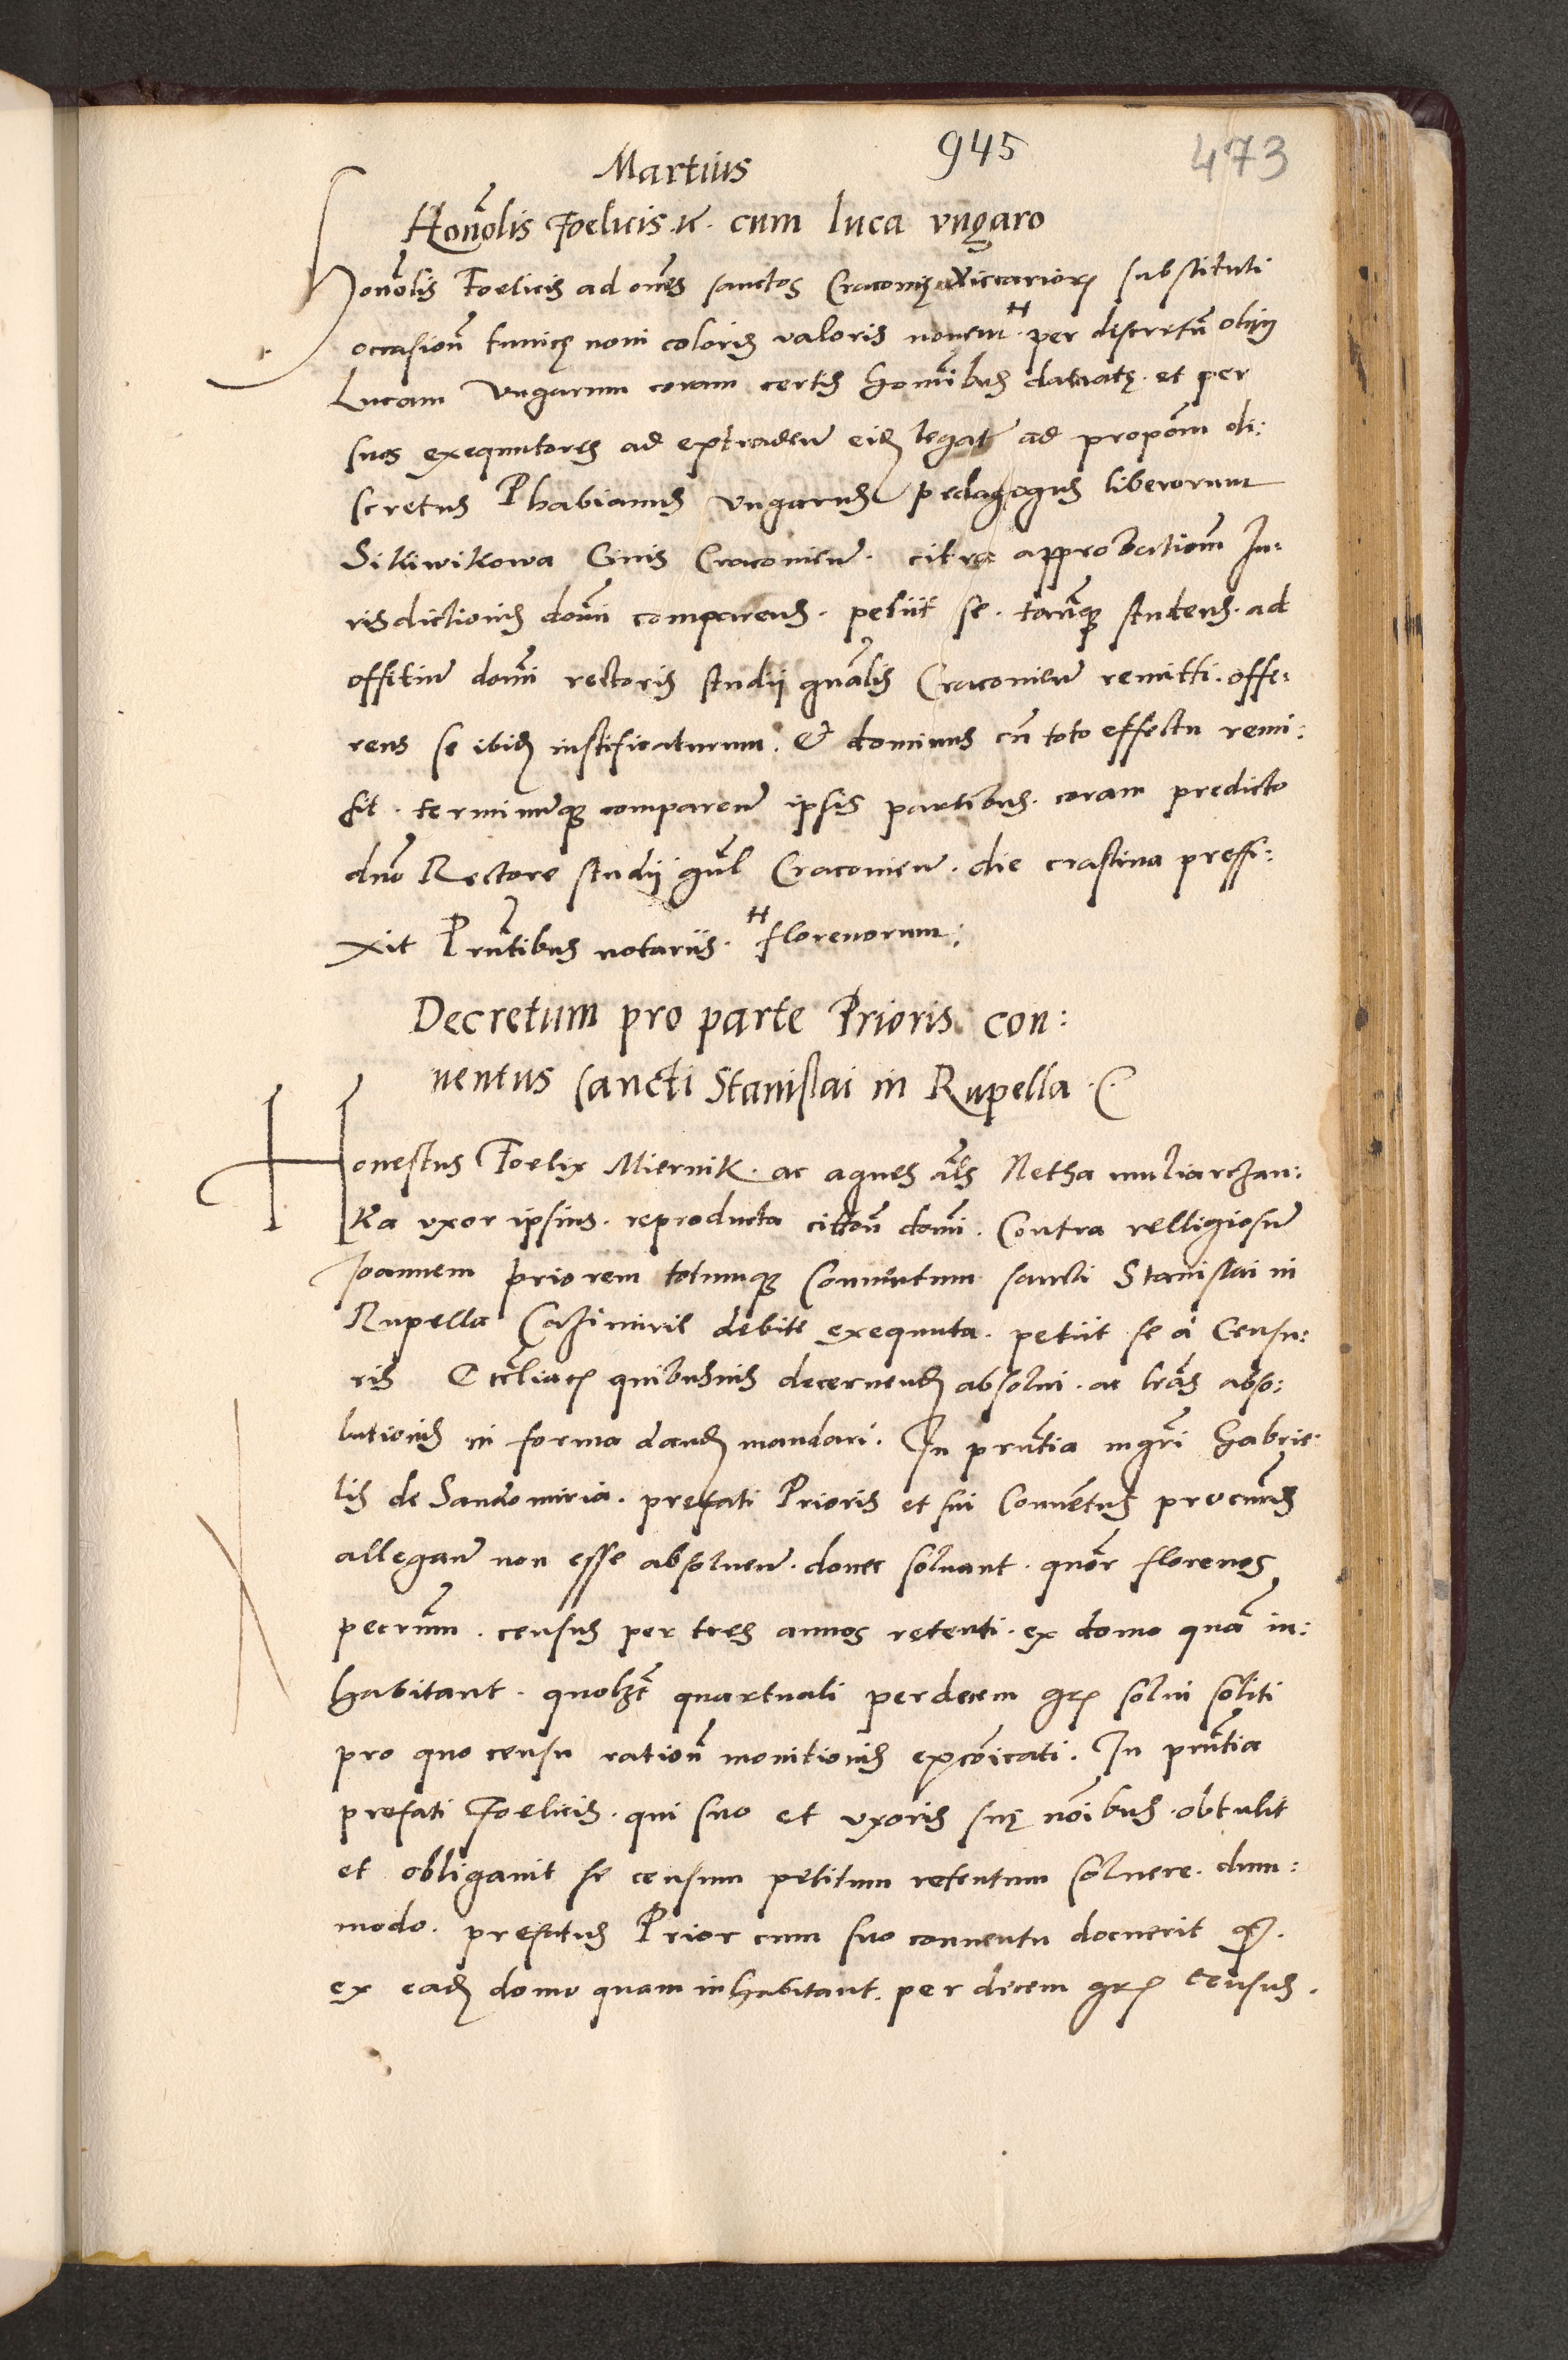 945
473
Martius
Honolis Foelicis &c. cum luca ungaro
Honolis Foelicis ad omes sanctos Cracouię viccariorum substituti
occasion tunicę noui coloris valoris nouem per discretum olim
Lucam Vngarum coram certis hominibus datę et per
suos exequutores ad extraden eidem legat ad propom di:
scretus Phabianus Vngarus pedagogus liberorum
Sikiwikowa Ciuis Cracouien. citra approbationem Iu:
risdictionis domi comparens. petiit se tanque studens ad
offitium domi rectoris studii gnalis Cracouien remitti. offe:
rens se ibidem iustificaturum. & dominus cum toto effectu remi:
sit. terminumque comparen ipsis partibus. coram predicto
dno Rectore studii gnl Cracouien. die crastina preffi:
xit Pntibus notariis. H florenorum:
Decretum pro parte Prioris con:
uentus sancti Stanislai in Rupella. C
Honestus Foelix Miernik. ac agnes als Netha muliarczan:
ka uxor ipsius. reproducta citton domi. Contra relligiosum
Joannem priorem totumque Conuentum sancti Stanislai in
Rupella Casimirie debite exequuta. petiit se a Censu:
ris quibusuis decernendum absolui. ac lras abso:
lutionis in forma dandum mandari. In pntia mgri Gabrie:
lis de Sandomiria. prefati Prioris et sui Conuentus procuris
allegan non esse absoluen. donec soluant. quor florenos
pecrum. census per tres annos retenti. ex domo quam in:
habitant. quolzt quartuali per decem gr solui soliti
pro quo censu ration monitionis excoicati. In pntia
prefati Foelicis. qui suo et vxoris suę noibus obtulit
et obligauit se censum petitum retentum soluere. dum:
modo. prefatus Prior cum suo conuentu docuerit q.
ex eadem domo quam inhabitant. per decem gr census.